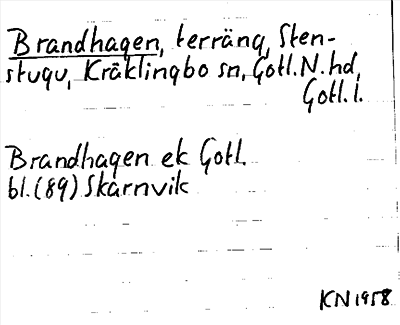 Brandhagen, terräng, Sten-
stugu, Kräklingbo sn, Gotl. N. hd,
Gotl. l.
Brandhagen ek Gotl.
bl. (89) Skarnvik
KN 1958